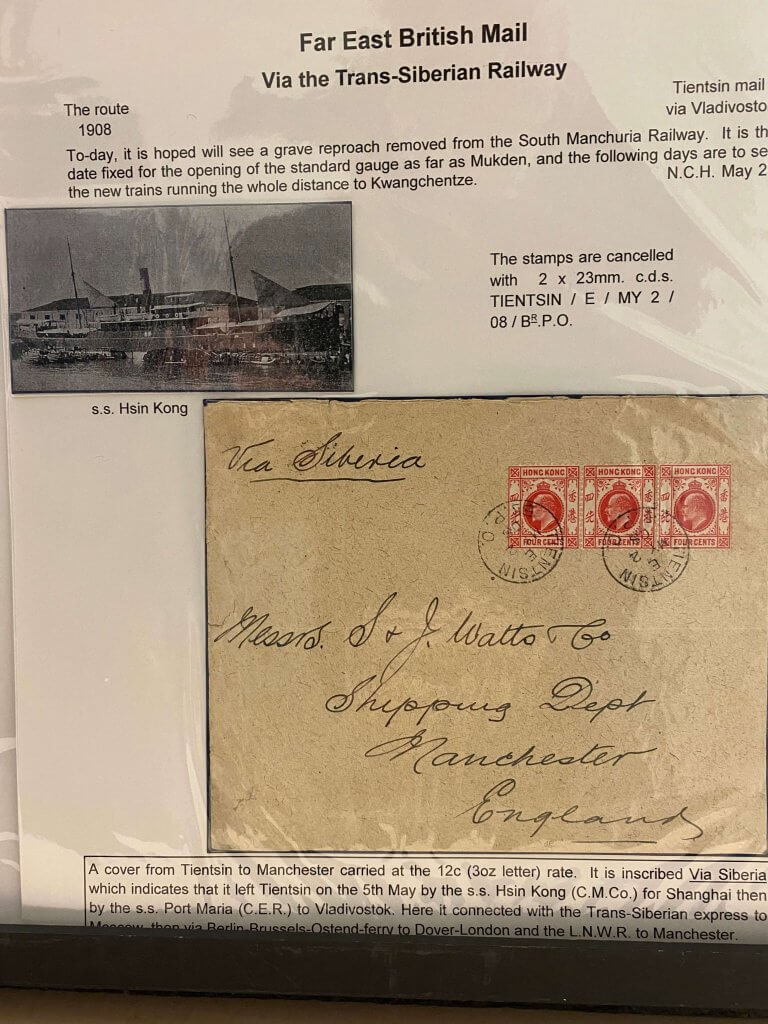 Far East British Mail
Via the Trans-Siberian Railway
The route
1908
Tientsin mail
via Vladivosto
To-day, it is hoped will see a grave reproach removed from the South Manchuria Railway. It is th
date fixed for the opening of the standard gauge as far as Mukden, and the following days are to se
the new trains running the whole distance to Kwangchentze.
N.C.H. May 2
The stamps are cancelled
with 2 x 23mm. c.d.s.
TIENTSIN / E / MY 2 /
08 / BR.P.O.
s.s. Hsin Kong
Via Siberia
HONG KONG HONG KONG HONG KONG
FOUR CENTS FOUR CENTS FOUR CENTS
TIENTSIN TIENTSIN
Messrs. S & J. Watts & Co
Shipping Dept
Manchester
England
A cover from Tientsin to Manchester carried at the 12c (3oz letter) rate. It is inscribed Via Siberia
which indicates that it left Tientsin on the 5th May by the s.s. Hsin Kong (C.M.Co.) for Shanghai then
by the s.s. Port Maria (C.E.R.) to Vladivostok. Here it connected with the Trans-Siberian express to
Moscow, then via Berlin-Brussels-Ostend-ferry to Dover-London and the L.N.W.R. to Manchester.